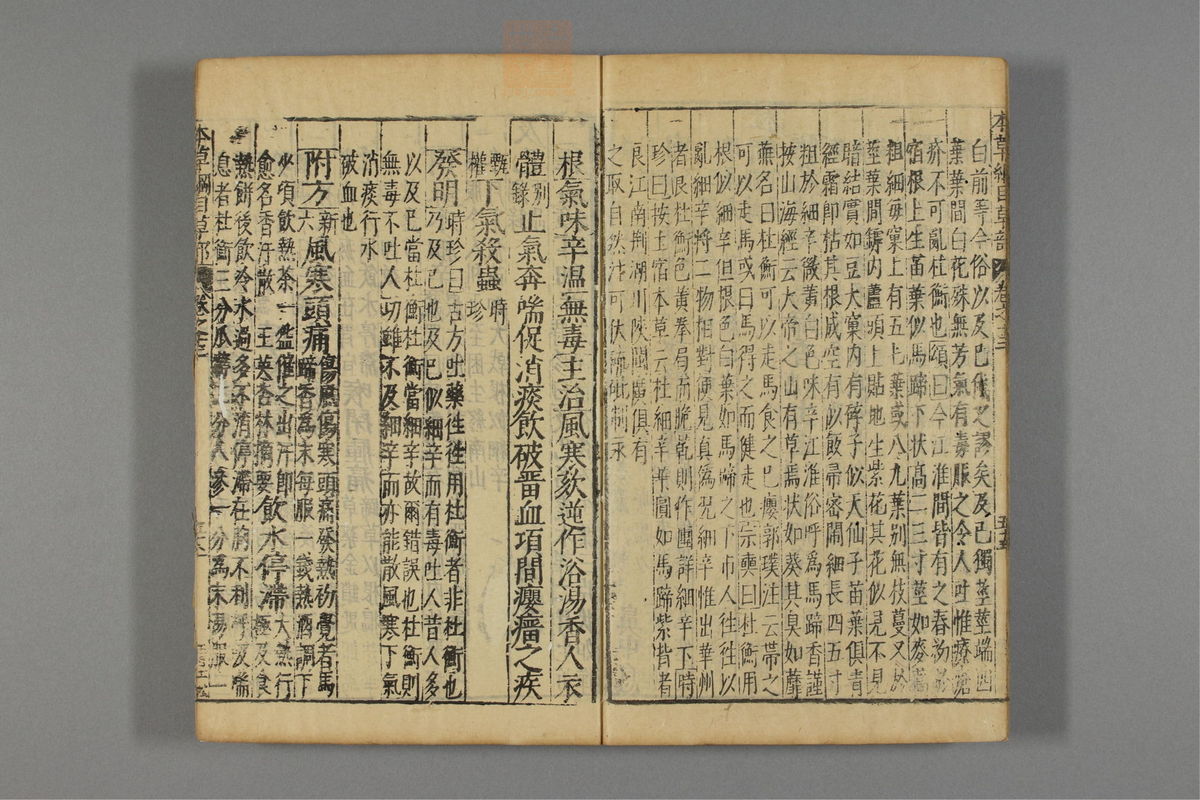 本草綱目草部 卷之十三
白前等今俗以及已代之謬矣及已獨莖莖端四
葉葉間白花殊無芳氣有毒服之令人吐惟療瘡
疥不可亂杜衡也頌曰今江淮間皆有之春初於
宿根上生苗葉似馬蹄下狀高二三寸莖如麥藁
粗細每窠上有五七葉或八九葉別無枝蔓又於
莖葉間罅內蘆頭上貼地生紫花其花似見不見
暗結實如豆大窠內有碎子似天仙子苗葉俱青
經霜即枯其根成空有似飯帚密鬧細長四五寸
粗於細辛微黃白色味辛江淮俗呼為馬蹄香謹
按山海經云天帝之山有草焉狀如葵其臭如蘼
蕪名曰杜衡可以走馬食之已癭郭璞注云帶之
可以走馬或曰馬得之而健走也宗奭曰杜衡用
根似細辛但根色白葉如馬蹄之下市人往往以
亂細辛將二物相對便見真偽況細辛惟出華州
者良杜衡色黃拳局而脆乾則作團詳細辛下時
珍曰按土宿本草云杜細辛葉圓如馬蹄紫背者
良江南荊湖川陝閩廣俱有
之取自然汁可伏硫砒制汞
根氣味辛溫無毒主治風寒欬逆作浴湯香人衣
體別錄止氣奔喘促消痰飲破留血項間癭瘤之疾
甄權下氣殺蟲時珍
發明時珍曰古方吐藥往往用杜衡者非杜衡也
乃及已也及已似細辛而有毒吐人昔人多
以及已當杜衡杜衡當細辛故爾錯誤也杜衡則
無毒不吐人功雖不及細辛而亦能散風寒下氣
消痰行水
破血也
附方新六風寒頭痛傷風傷寒頭痛發熱初覺者馬
蹄香為末每服一錢熱酒調下
少頃飲熱茶一盌催之出汗即
愈名香汗散 王英杏林摘要飲水停滯大熱行極及食
熱餅後飲冷水過多不消停滯在胸不利呼吸喘
息者杜衡三分瓜蔕二分人參一分為末湯服一
本草綱目草部 卷之十三